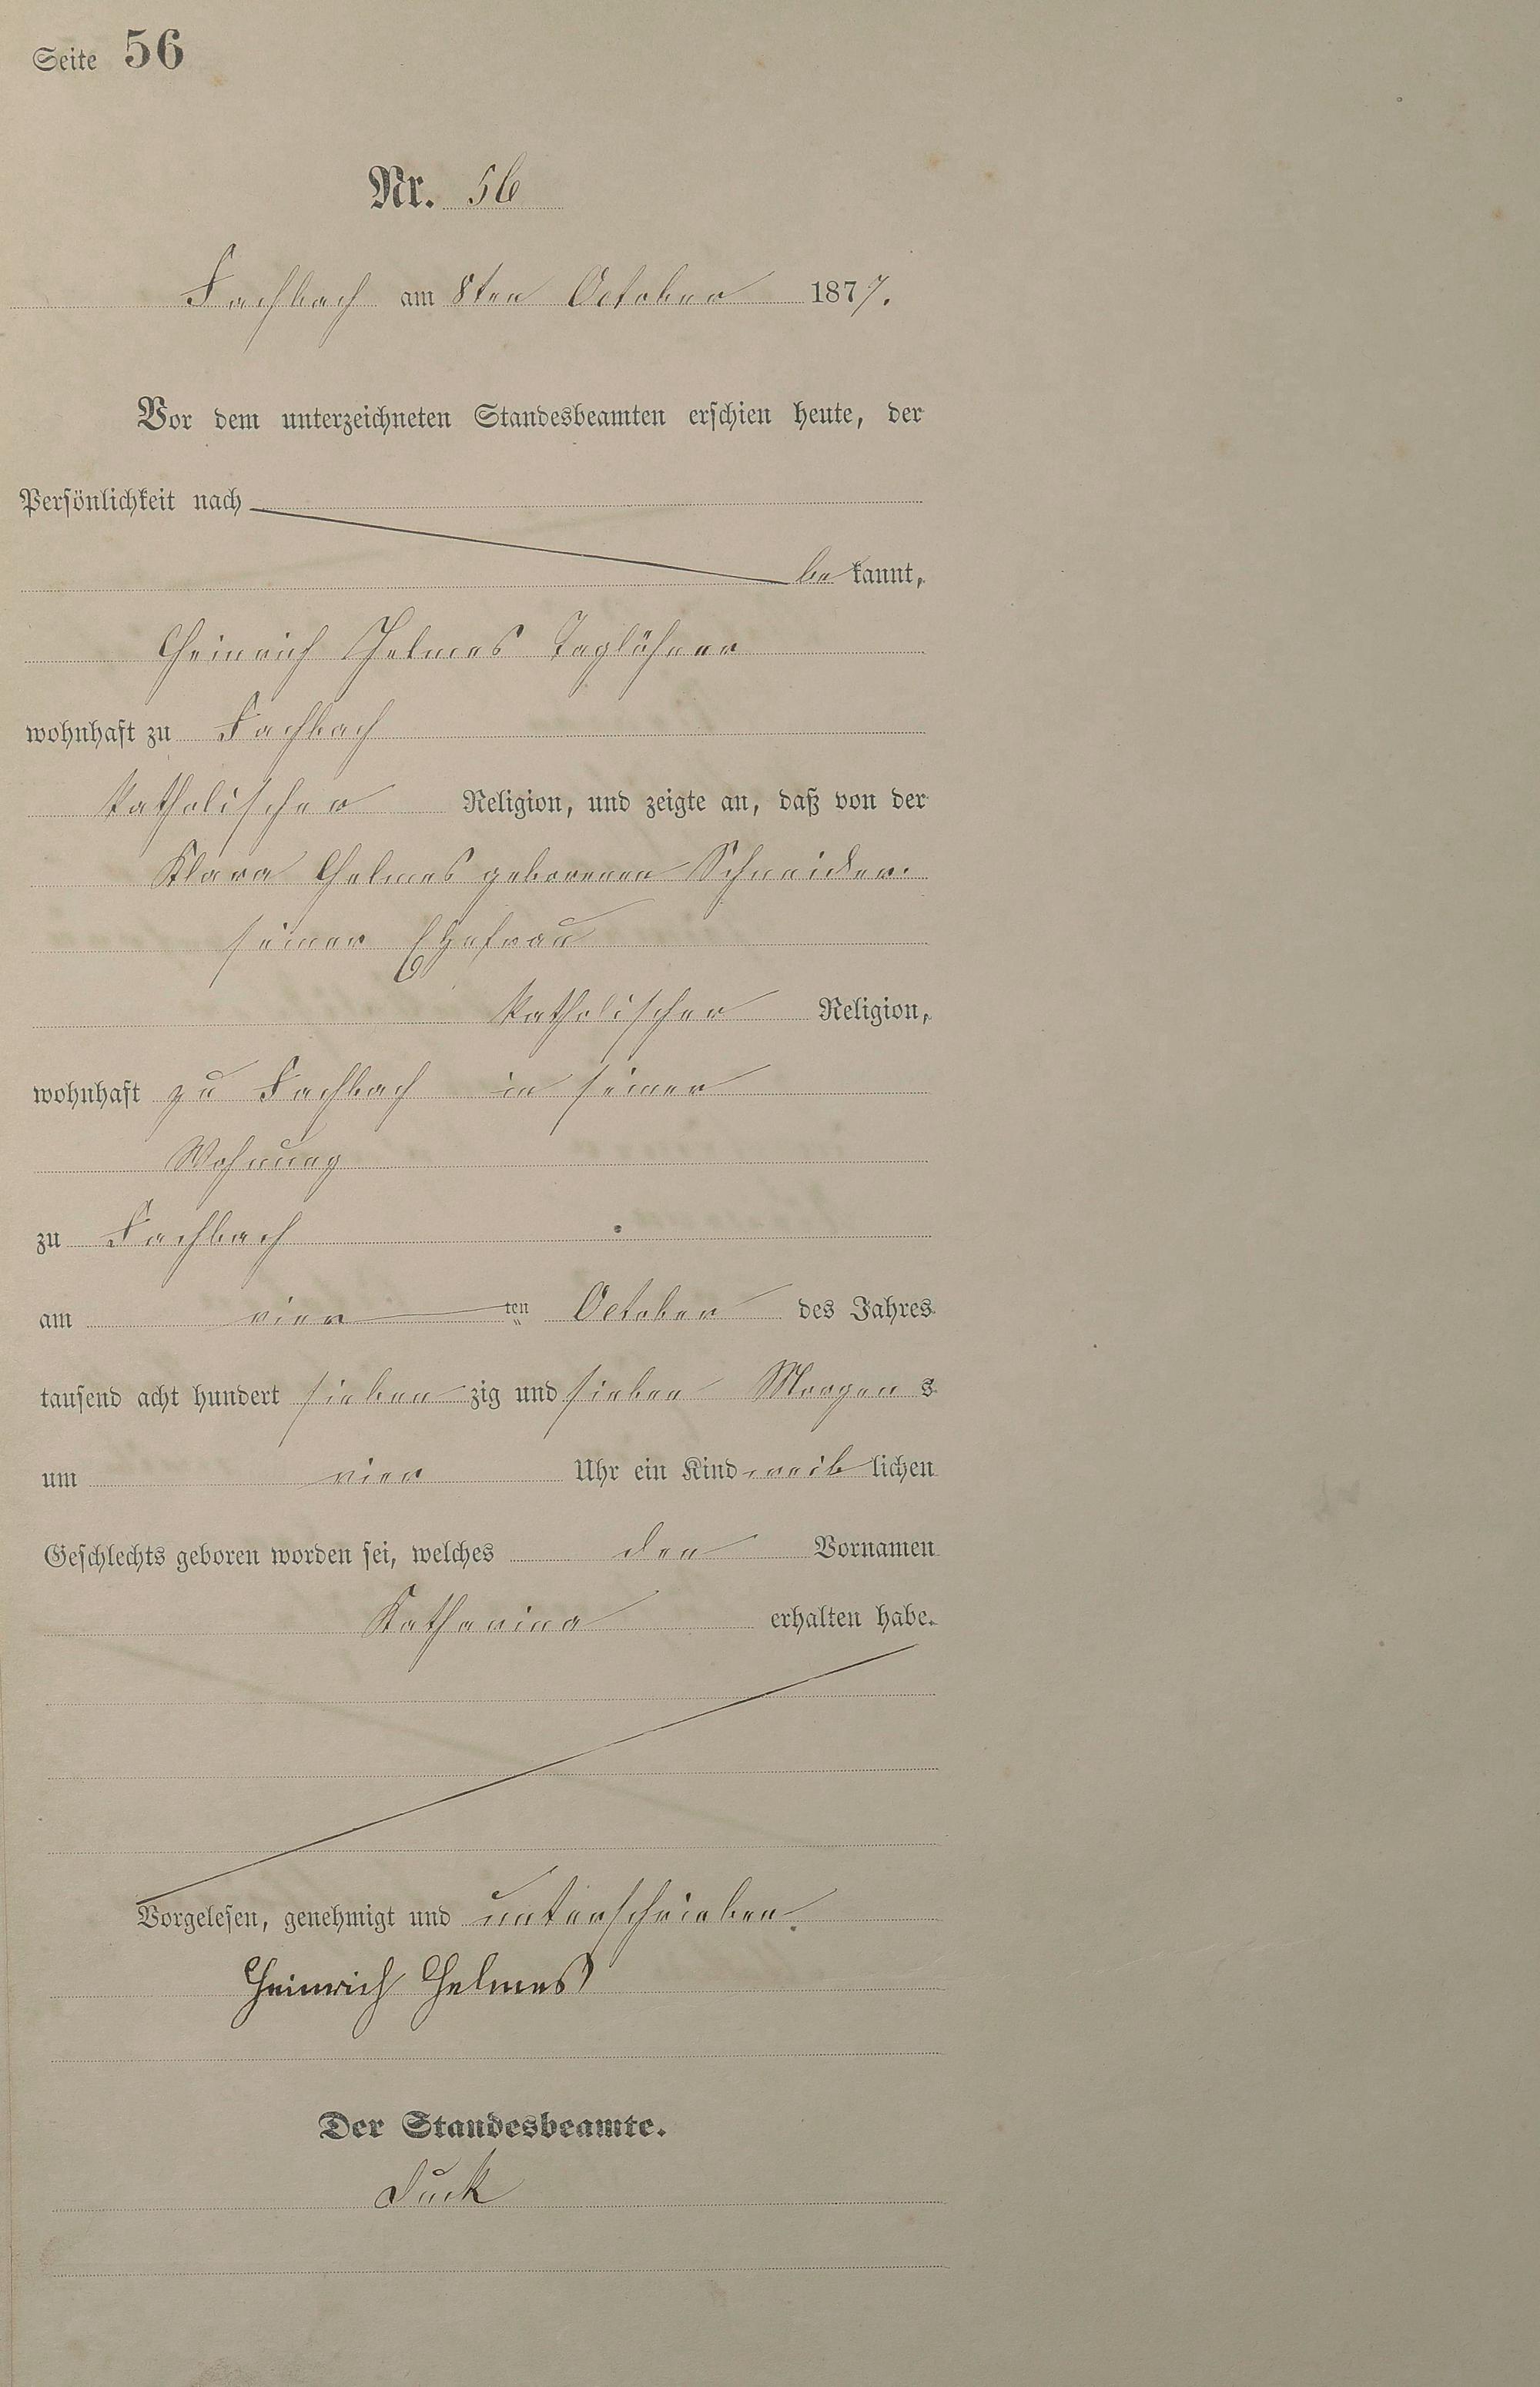 Seite 56
Nr. 56
Fachbach am 8ten October 1877.
Vor dem unterzeichneten Standesbeamten erschien heute, der
Persönlichkeit nach
be kannt,
Heinrich Helmes Taglöhner
wohnhaft zu Fachbach
katholischer Religion, und zeigte an, daß von der
Klara Helmes geborenen Schneider.
seiner Ehefrau
katholischer Religion,
wohnhaft zu Fachbach in seiner
Wohnung
zu Fachbach
am vier ten October des Jahres
tausend acht hundert sieben zig und sieben Morgens
um vier Uhr ein Kind weib lichen
Geschlechts geboren worden sei, welches den Vornamen
Katharina erhalten habe.
Vorgelesen, genehmigt und unterschrieben.
Heinrich Helmes
Der Standesbeamte.